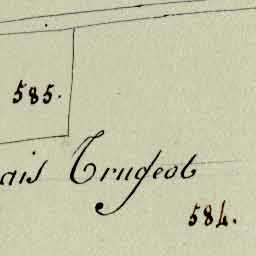 585.
ais Trugeot
584.